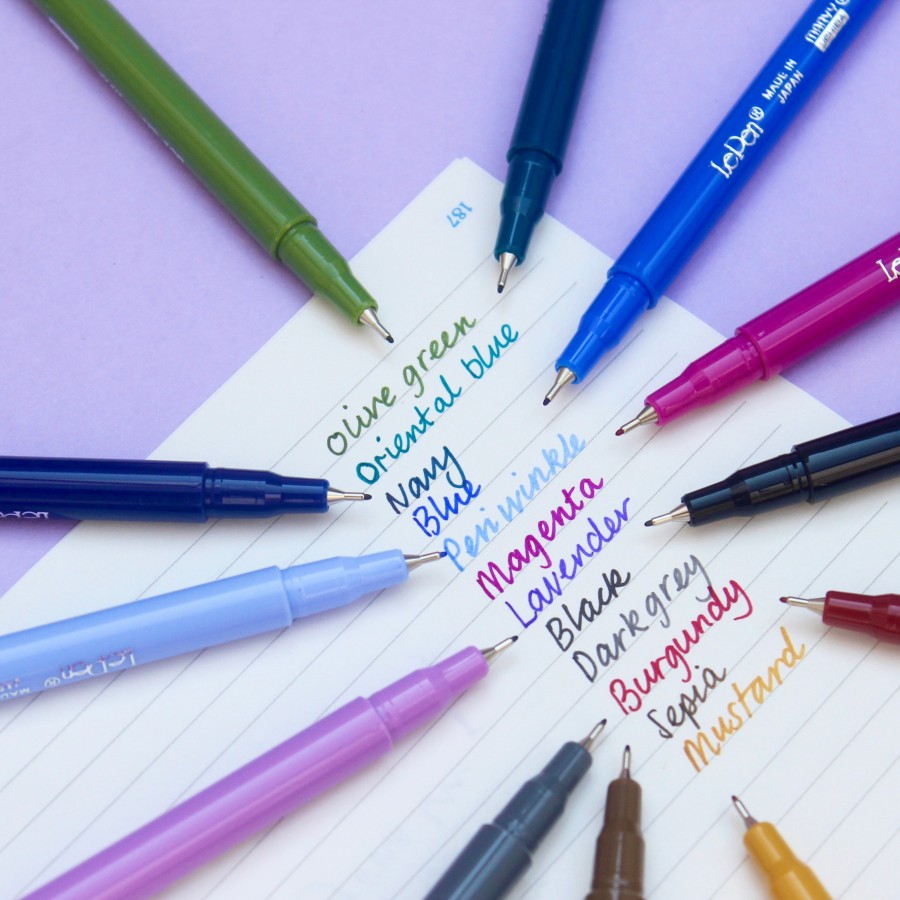 187
Olive green
Oriental blue
Navy
Blue
Periwinkle
Magenta
Lavender
Black
Dark grey
Burgundy
Sepia
Mustard
LePen®
MADE IN
JAPAN
LePen